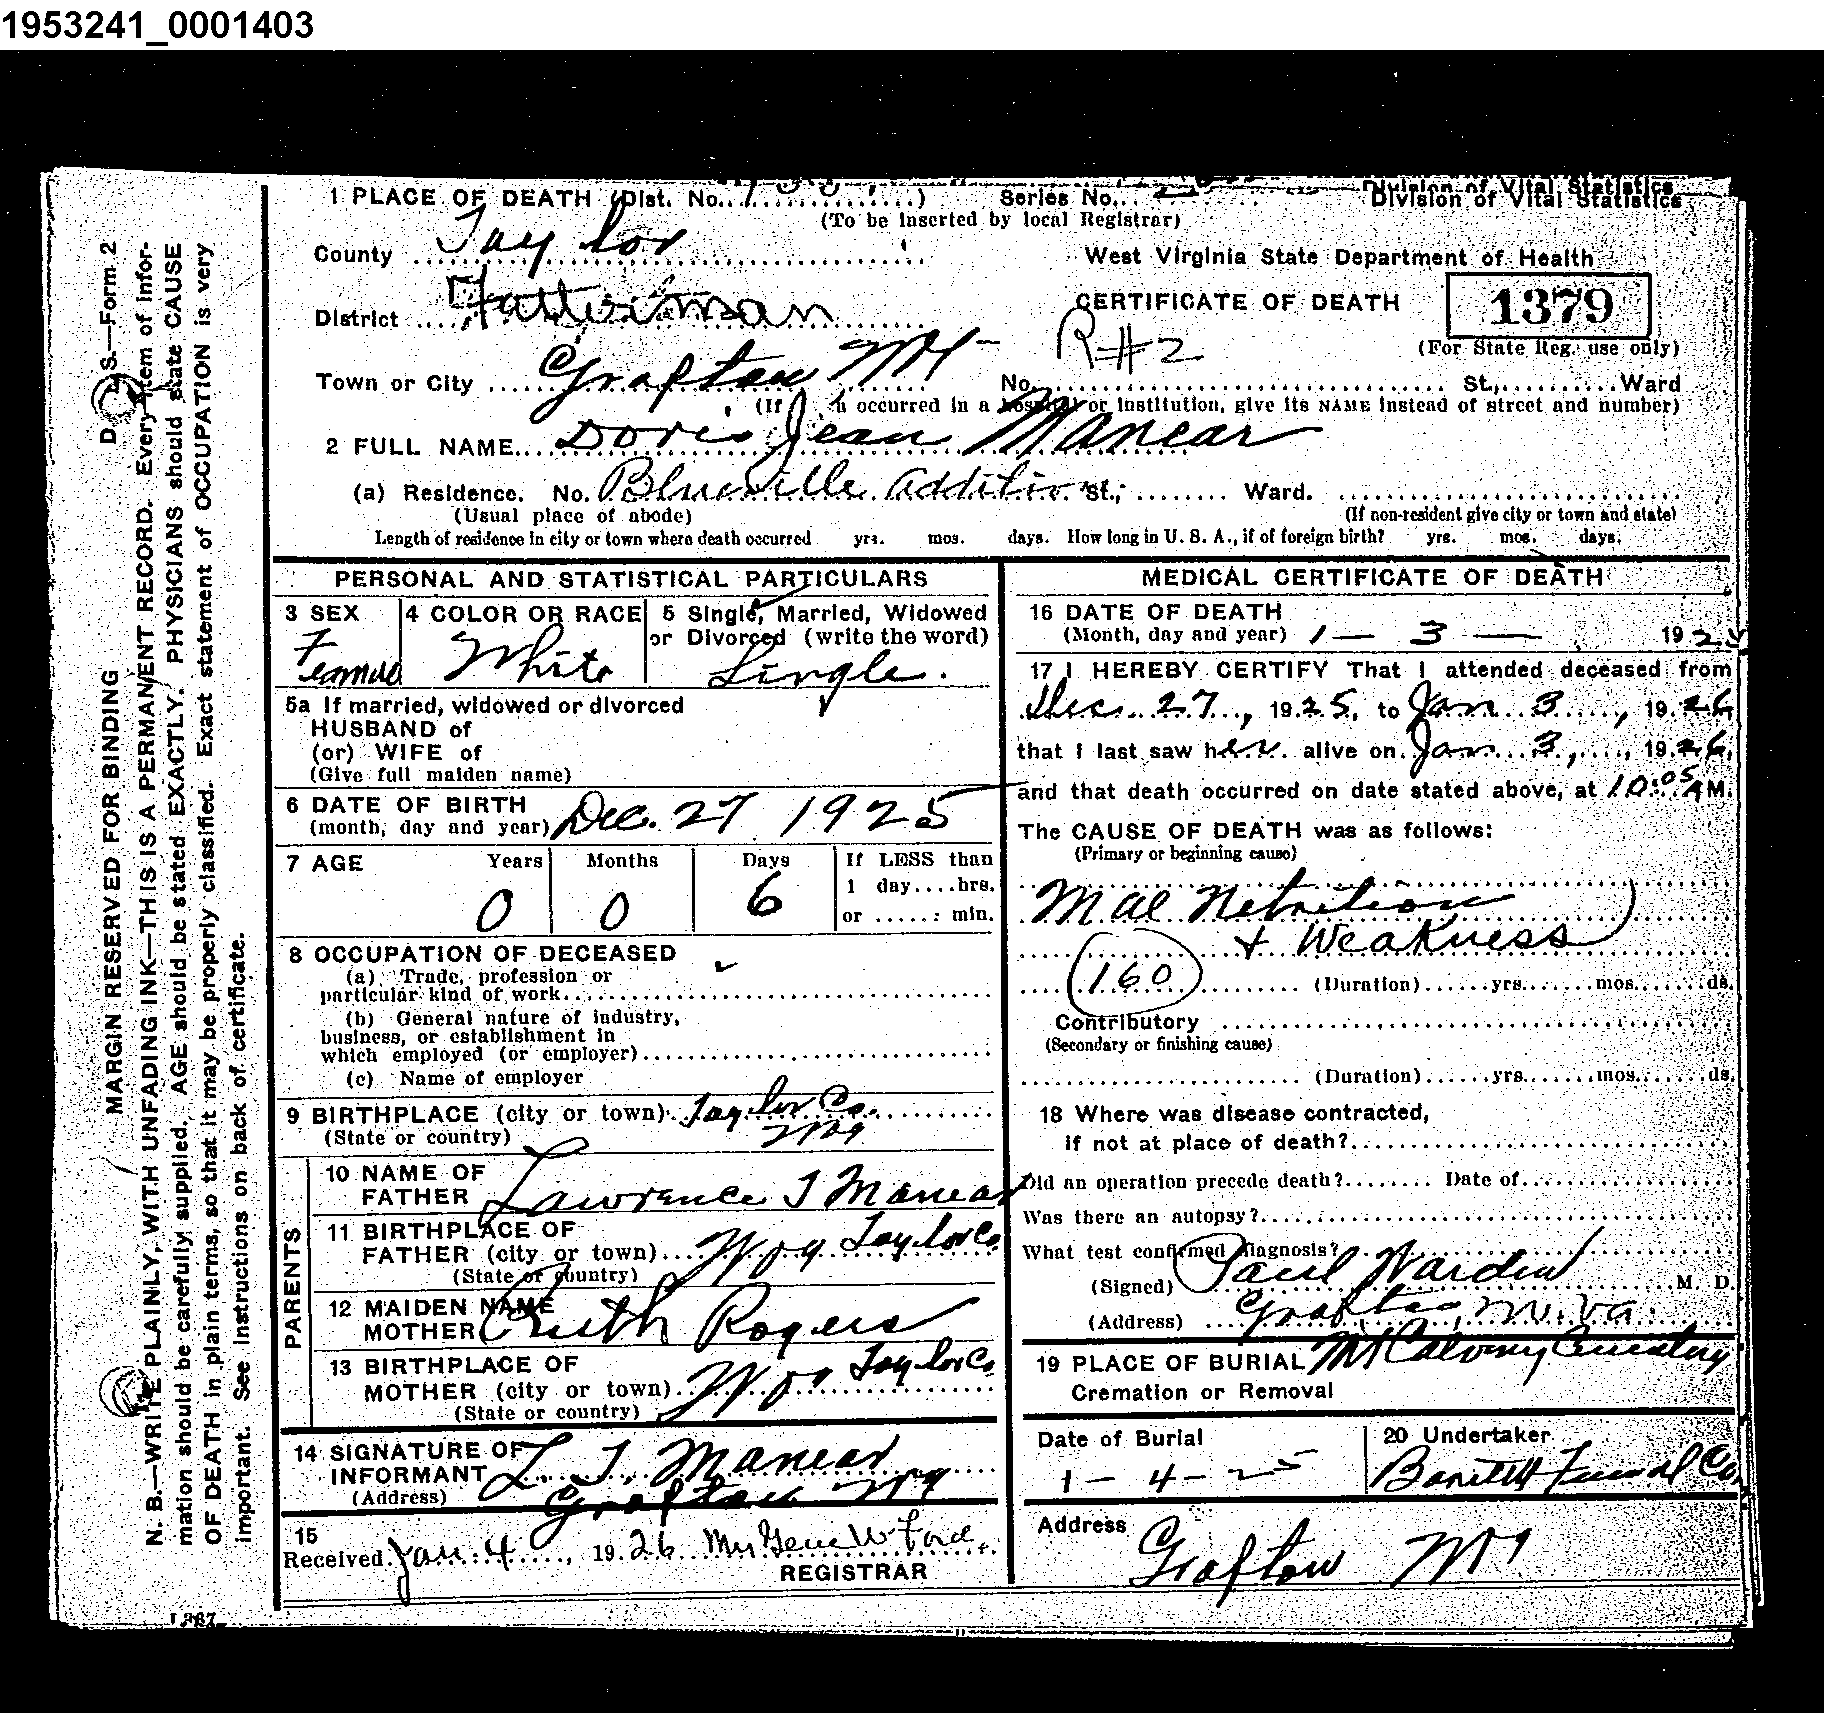 1953241_0001403
1 PLACE OF DEATH (Dist. No. ) Series No.
Division of Vital Statistics
(To be inserted by local Registrar)
County Taylor
West Virginia State Department of Health
District Fetterman
CERTIFICATE OF DEATH 1379
R#2
(For State Reg. use only)
Town or City Grafton
No. St., Ward
(If occurred in a hospital or institution, give its NAME instead of street and number)
2 FULL NAME Doris Jean Manear
(a) Residence. No. Blueville Addition St., Ward.
(Usual place of abode) (If non-resident give city or town and state)
Length of residence in city or town where death occurred yrs. mos. days. How long in U. S. A., if of foreign birth? yrs. mos. days.
PERSONAL AND STATISTICAL PARTICULARS
3 SEX 4 COLOR OR RACE 5 Single, Married, Widowed
or Divorced (write the word)
Female White Single.
5a If married, widowed or divorced
HUSBAND of
(or) WIFE of
(Give full maiden name)
6 DATE OF BIRTH
(month, day and year) Dec. 27 1925
7 AGE Years Months Days If LESS than
1 day....hrs.
or ...... min.
0 0 6
8 OCCUPATION OF DECEASED
(a) Trade, profession or
particular kind of work
(b) General nature of industry,
business, or establishment in
which employed (or employer)
(c) Name of employer
9 BIRTHPLACE (city or town) Taylor Co.
(State or country)
PARENTS
10 NAME OF
FATHER Lawrence T Manear
11 BIRTHPLACE OF
FATHER (city or town) Taylor Co
(State or country)
12 MAIDEN NAME
MOTHER Ruth Rogers
13 BIRTHPLACE OF
MOTHER (city or town) Taylor Co
(State or country)
14 SIGNATURE OF
INFORMANT L. T. Manear
(Address) Grafton
15
Received Jan. 4, 1926 Mrs Gene W Ford.
REGISTRAR
MEDICAL CERTIFICATE OF DEATH
16 DATE OF DEATH
(Month, day and year) 1 - 3 - 192
17 I HEREBY CERTIFY That I attended deceased from
Dec. 27, 1925, to Jan 3, 1926
that I last saw her alive on Jan 3, 1926,
and that death occurred on date stated above, at 10:05 AM.
The CAUSE OF DEATH was as follows:
(Primary or beginning cause)
Mal Nutrition
+ Weakness
160
(Duration) yrs. mos. ds.
Contributory
(Secondary or finishing cause)
(Duration) yrs. mos. ds.
18 Where was disease contracted,
if not at place of death?
Did an operation precede death? Date of
Was there an autopsy?
What test confirmed diagnosis?
(Signed) Paul Warden M. D.
(Address) Grafton, W. Va.
19 PLACE OF BURIAL Mt Calvary Cemetery
Cremation or Removal
Date of Burial 20 Undertaker
1 - 4 - 25 Funeral Co.
Address
Grafton
D. S.—Form 2
MARGIN RESERVED FOR BINDING
N. B.—WRITE PLAINLY, WITH UNFADING INK—THIS IS A PERMANENT RECORD. Every item of infor-
mation should be carefully supplied. AGE should be stated EXACTLY. PHYSICIANS should state CAUSE
OF DEATH in plain terms, so that it may be properly classified. Exact statement of OCCUPATION is very
important. See instructions on back of certificate.